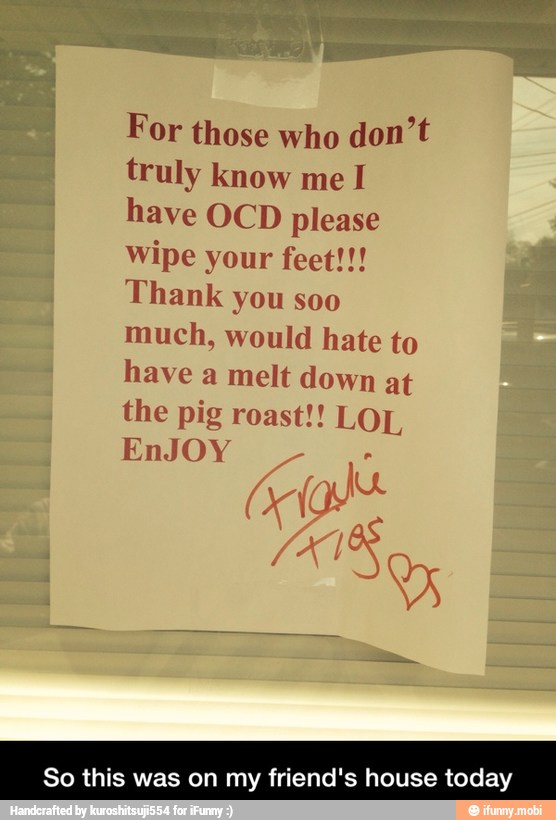 For those who don't
truly know me I
have OCD please
wipe your feet!!!
Thank you soo
much, would hate to
have a melt down at
the pig roast!! LOL
EnJOY
Frankie
Figs
So this was on my friend's house today
Handcrafted by kuroshitsuji554 for iFunny :)
ifunny.mobi